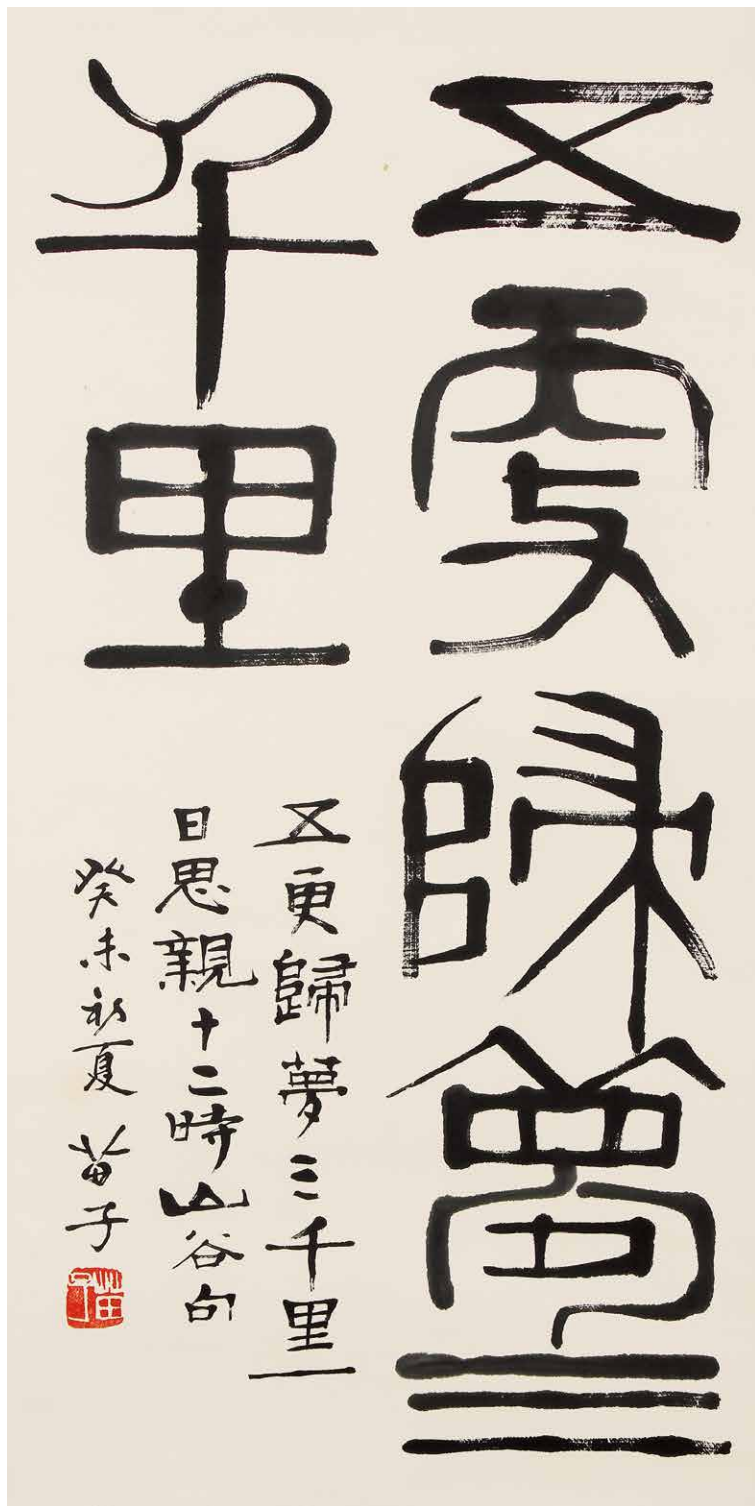 五更歸夢三
千里
五更歸夢三千里一
日思親十二時山谷句
癸未初夏苗子
苗子